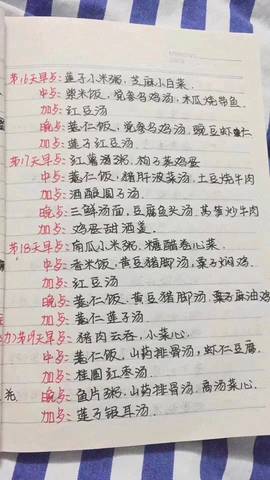 第16天早点:莲子小米粥,芝麻小白菜.
中点:糙米饭,党参乌鸡汤,木瓜烧带鱼.
加点:红豆汤
晚点:薏仁饭,党参乌鸡汤,豌豆虾仁
加点:莲子红豆汤.
第17天早点:红薯酒粥,枸子蒸鸡蛋
中点:薏仁饭,猪肝波菜汤,土豆烧牛肉
加点:酒酿圆子汤.
晚点:三鲜汤面,豆腐鱼头汤,莴笋炒牛肉
加点:鸡蛋甜酒羹.
第18天早点:南瓜小米粥,糖醋卷心菜.
中点:香米饭,黄豆猪脚汤,栗子焖鸡.
加点:红豆汤
晚点:薏仁饭,黄豆猪脚汤.栗子麻油鸡
加点:薏仁莲子汤
第19天早点:猪肉云吞,小菜心.
中点:薏仁饭,山药排骨汤,虾仁豆腐.
加点:桂圆红枣汤.
晚点:鱼片粥.山药排骨汤.高汤菜心.
加点:莲子银耳汤.